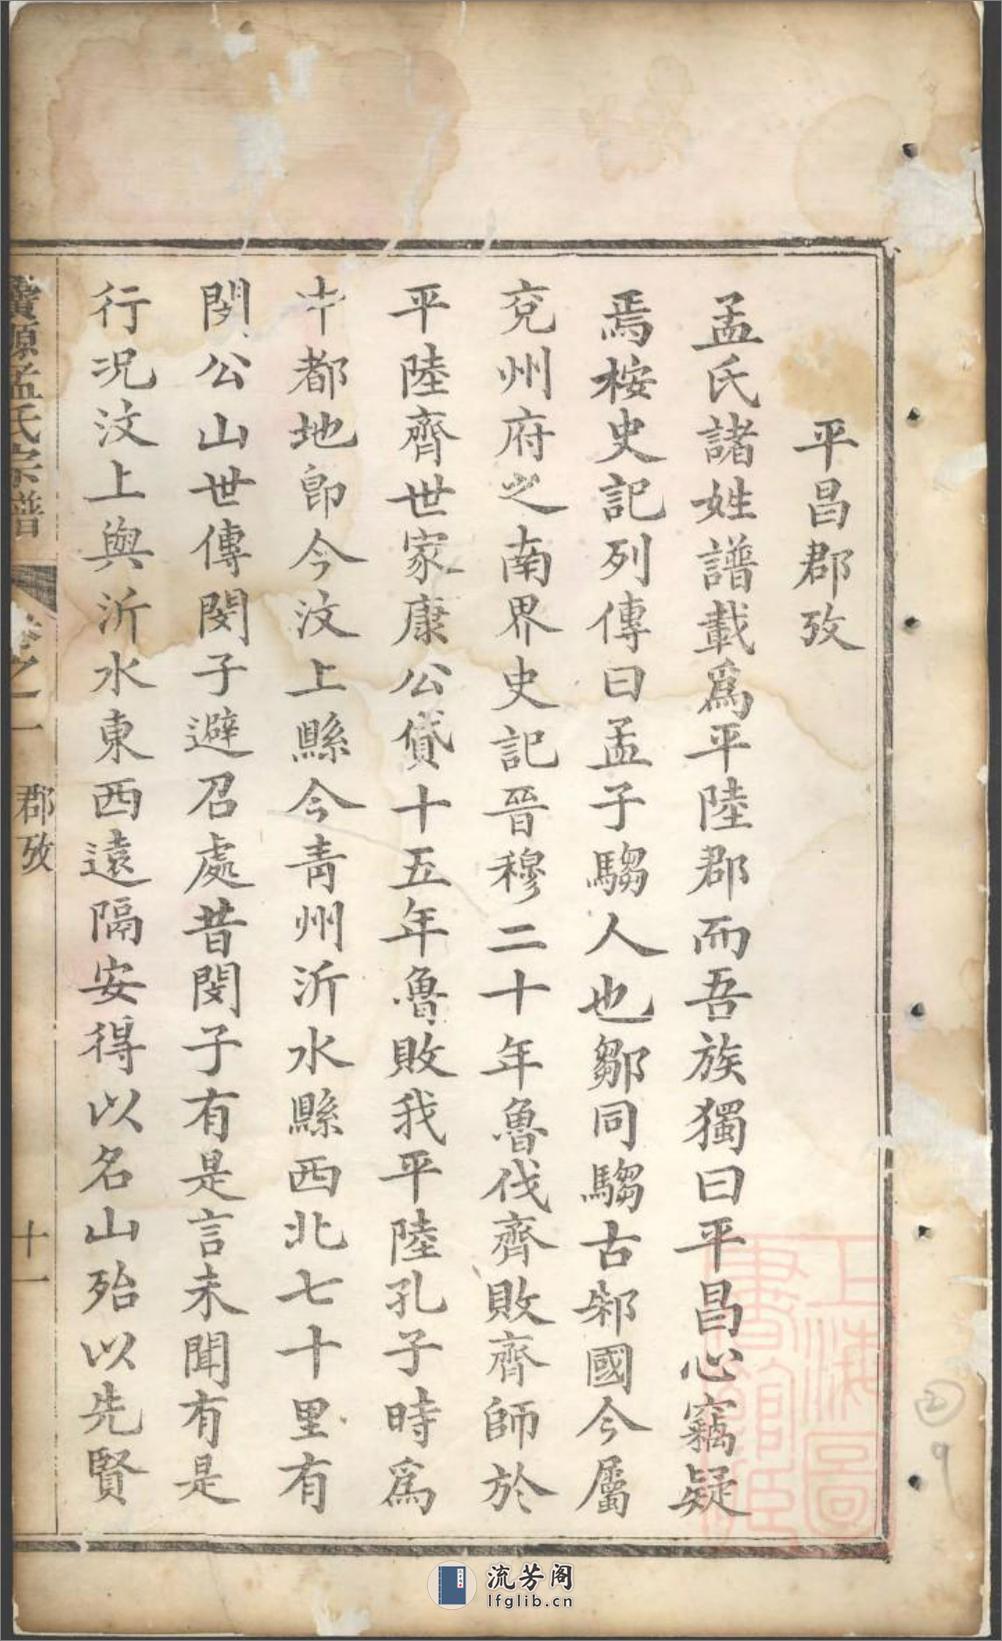 平昌郡攷
孟氏諸姓譜載爲平陸郡而吾族獨曰平昌心竊疑
焉桉史記列傳曰孟子騶人也鄒同騶古邾國今屬
兖州府之南界史記晉穆二十年魯伐齊敗齊師於
平陸齊世家康公貸十五年魯敗我平陸孔子時爲
中都地卽今汶上縣今靑州沂水縣西北七十里有
閔公山世傳閔子避召處昔閔子有是言未聞有是
行况汶上與沂水東西遠隔安得以名山殆以先賢
孟氏宗譜
卷之一
郡攷
十一
上海圖書館藏
② 9
流芳阁
lfglib.cn